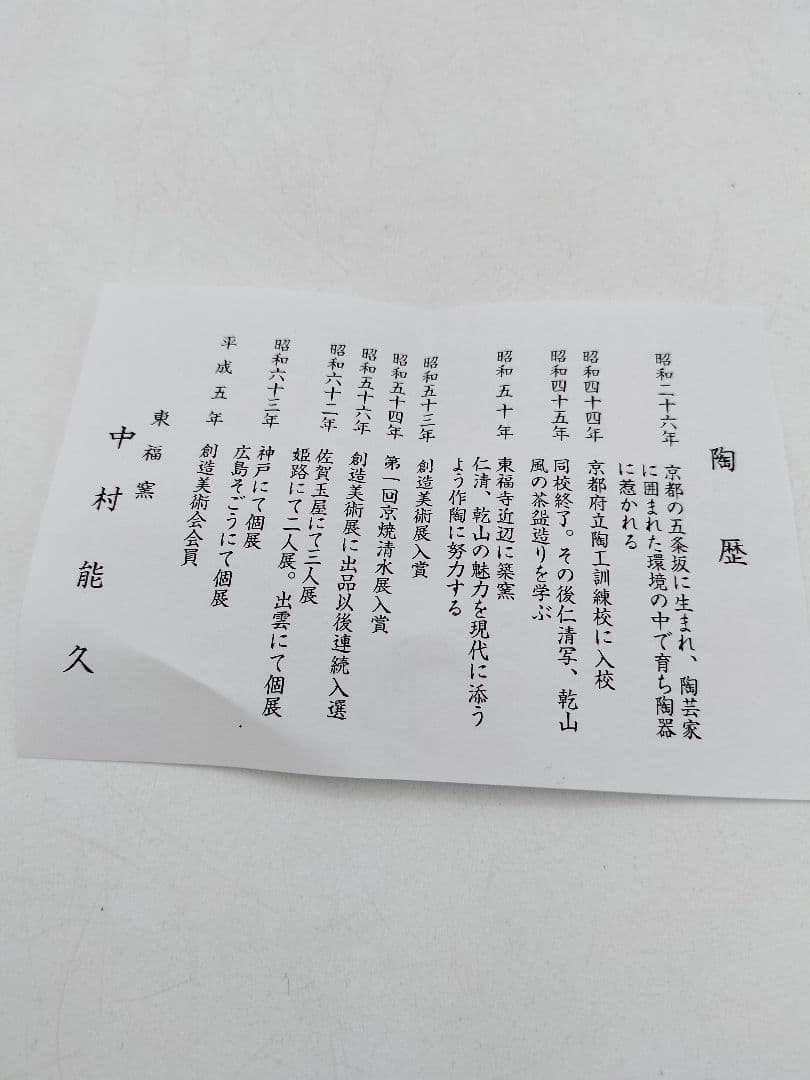 陶歴
昭和二十六年 京都の五条坂に生まれ、陶芸家
に囲まれた環境の中で育ち陶器
に惹かれる
昭和四十四年 京都府立陶工訓練校に入校
昭和四十五年 同校終了。その後仁清写、乾山
風の茶盌造りを学ぶ
昭和五十年 東福寺近辺に築窯
仁清、乾山の魅力を現代に添う
よう作陶に努力する
昭和五十三年 創造美術展入賞
昭和五十四年 第一回京焼清水展入賞
昭和五十六年 創造美術展に出品以後連続入選
昭和六十二年 佐賀玉屋にて三人展
姫路にて二人展。出雲にて個展
昭和六十三年 神戸にて個展
広島そごうにて個展
平成五年 創造美術会会員
東福窯
中村能久